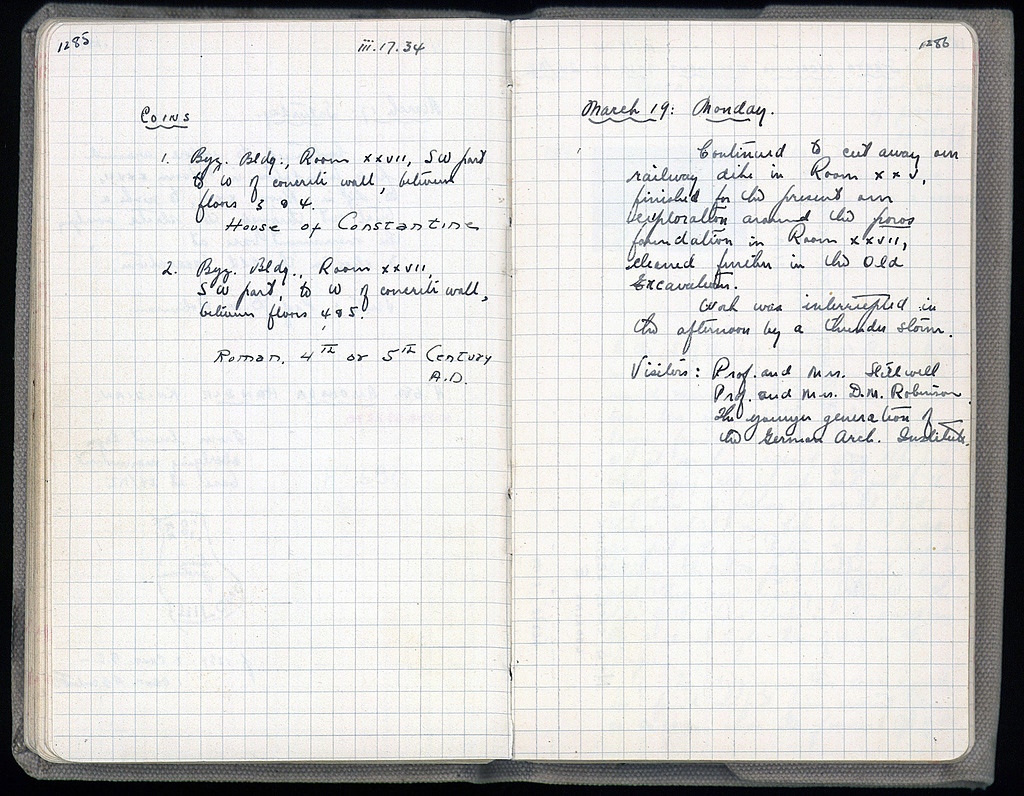 1285
iii.17.34
Coins
1. Byz. Bldg., Room xxvii, SW part
to W of concrete wall, between
floors 3 & 4.
House of Constantine
2. Byz. Bldg., Room xxvii,
SW part, to W of concrete wall,
between floors 4 & 5.
Roman. 4TH or 5TH Century
A.D.
1286
March 19: Monday.
Continued to cut away our
railway dike in Room xxv,
finished for the present our
exploration around the poros
foundation in Room xxvii,
cleaned further in the Old
Excavation.
Work was interrupted in
the afternoon by a thunder storm.
Visitors: Prof. and Mrs. Stillwell
Prof. and Mrs. D.M. Robinson.
The younger generation of
the German Arch. Institute.